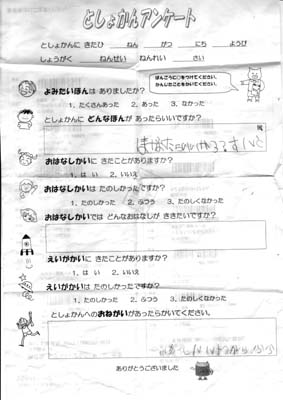 としょかんアンケート
としょかんに きたひ　ねん　がつ　にち　ようび
しょうがく　ねんせい　ねんれい　さい
ばんごうに○をつけてください。
かんじたことをかいてください。
よみたいほんは ありましたか?
1．たくさんあった　2．あった　3．なかった
としょかんに どんなほんが あったらいいですか?
おはなしかいに きたことがありますか?
1．はい　2．いいえ
おはなしかいは たのしかったですか?
1．たのしかった　2．ふつう　3．たのしくなかった
おはなしかいでは どんなおはなしが ききたいですか?
えいがかいに きたことがありますか?
1．はい　2．いいえ
えいがかいは たのしかったですか?
1．たのしかった　2．ふつう　3．たのしくなかった
としょかんへのおねがいがあったらかいてください。
ありがとうございました